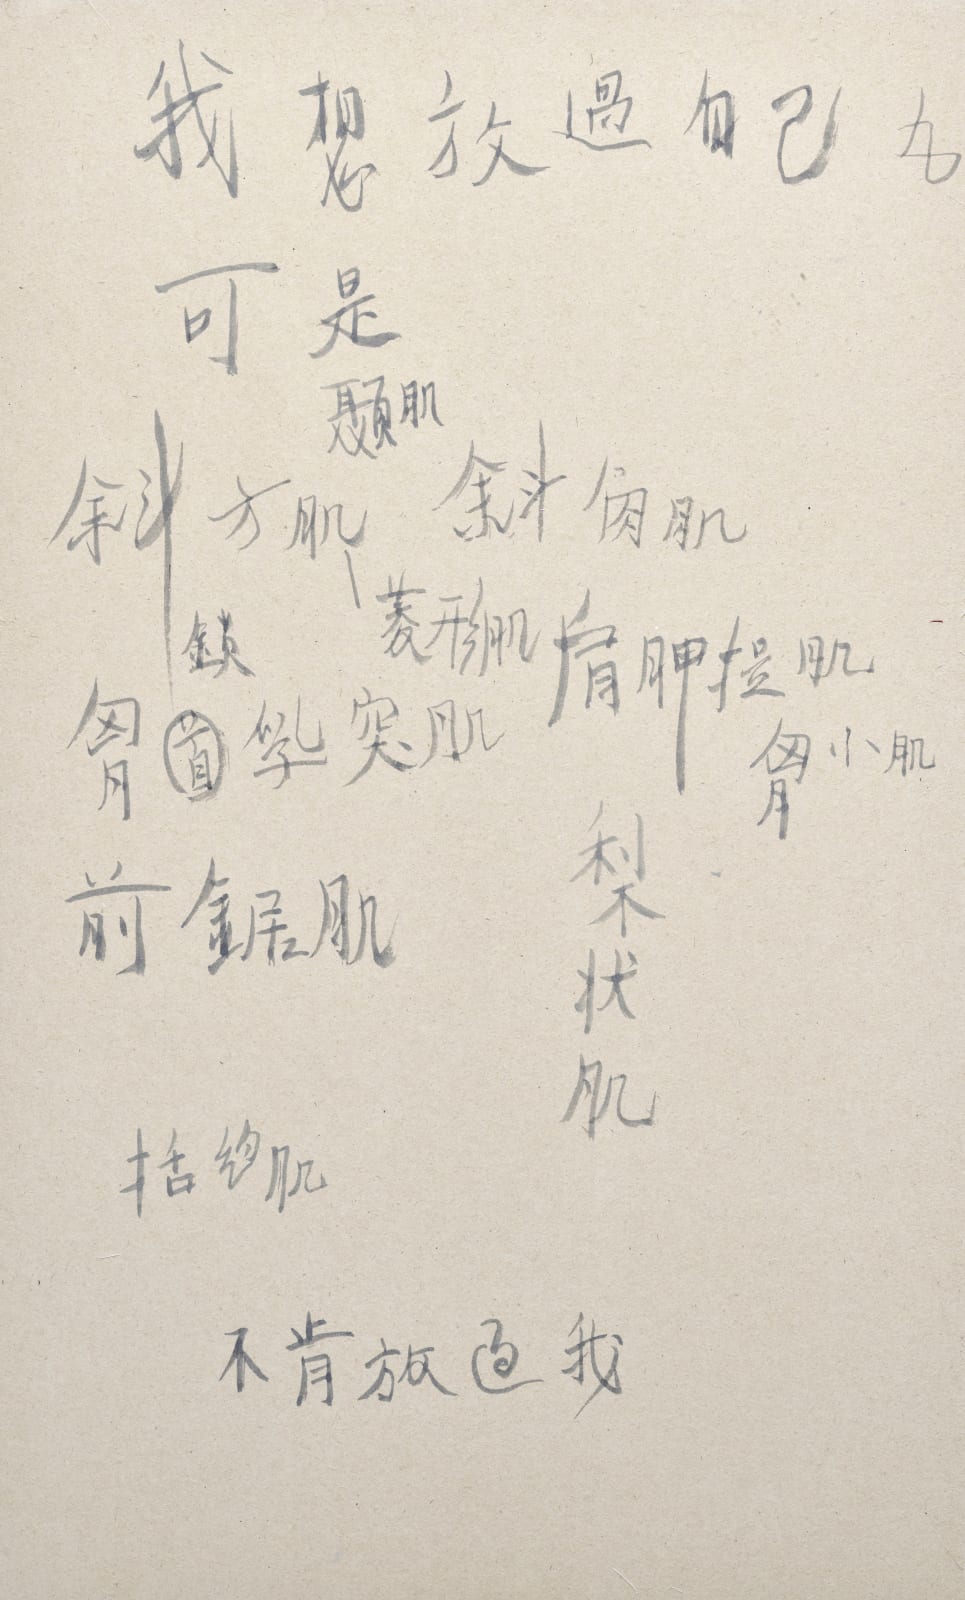 我想放過自己
可是
顳肌
斜方肌 斜角肌
菱形肌 肩胛提肌
鎖
胸首乳突肌 胸小肌
前鋸肌
梨
状
肌
括約肌
不肯放過我